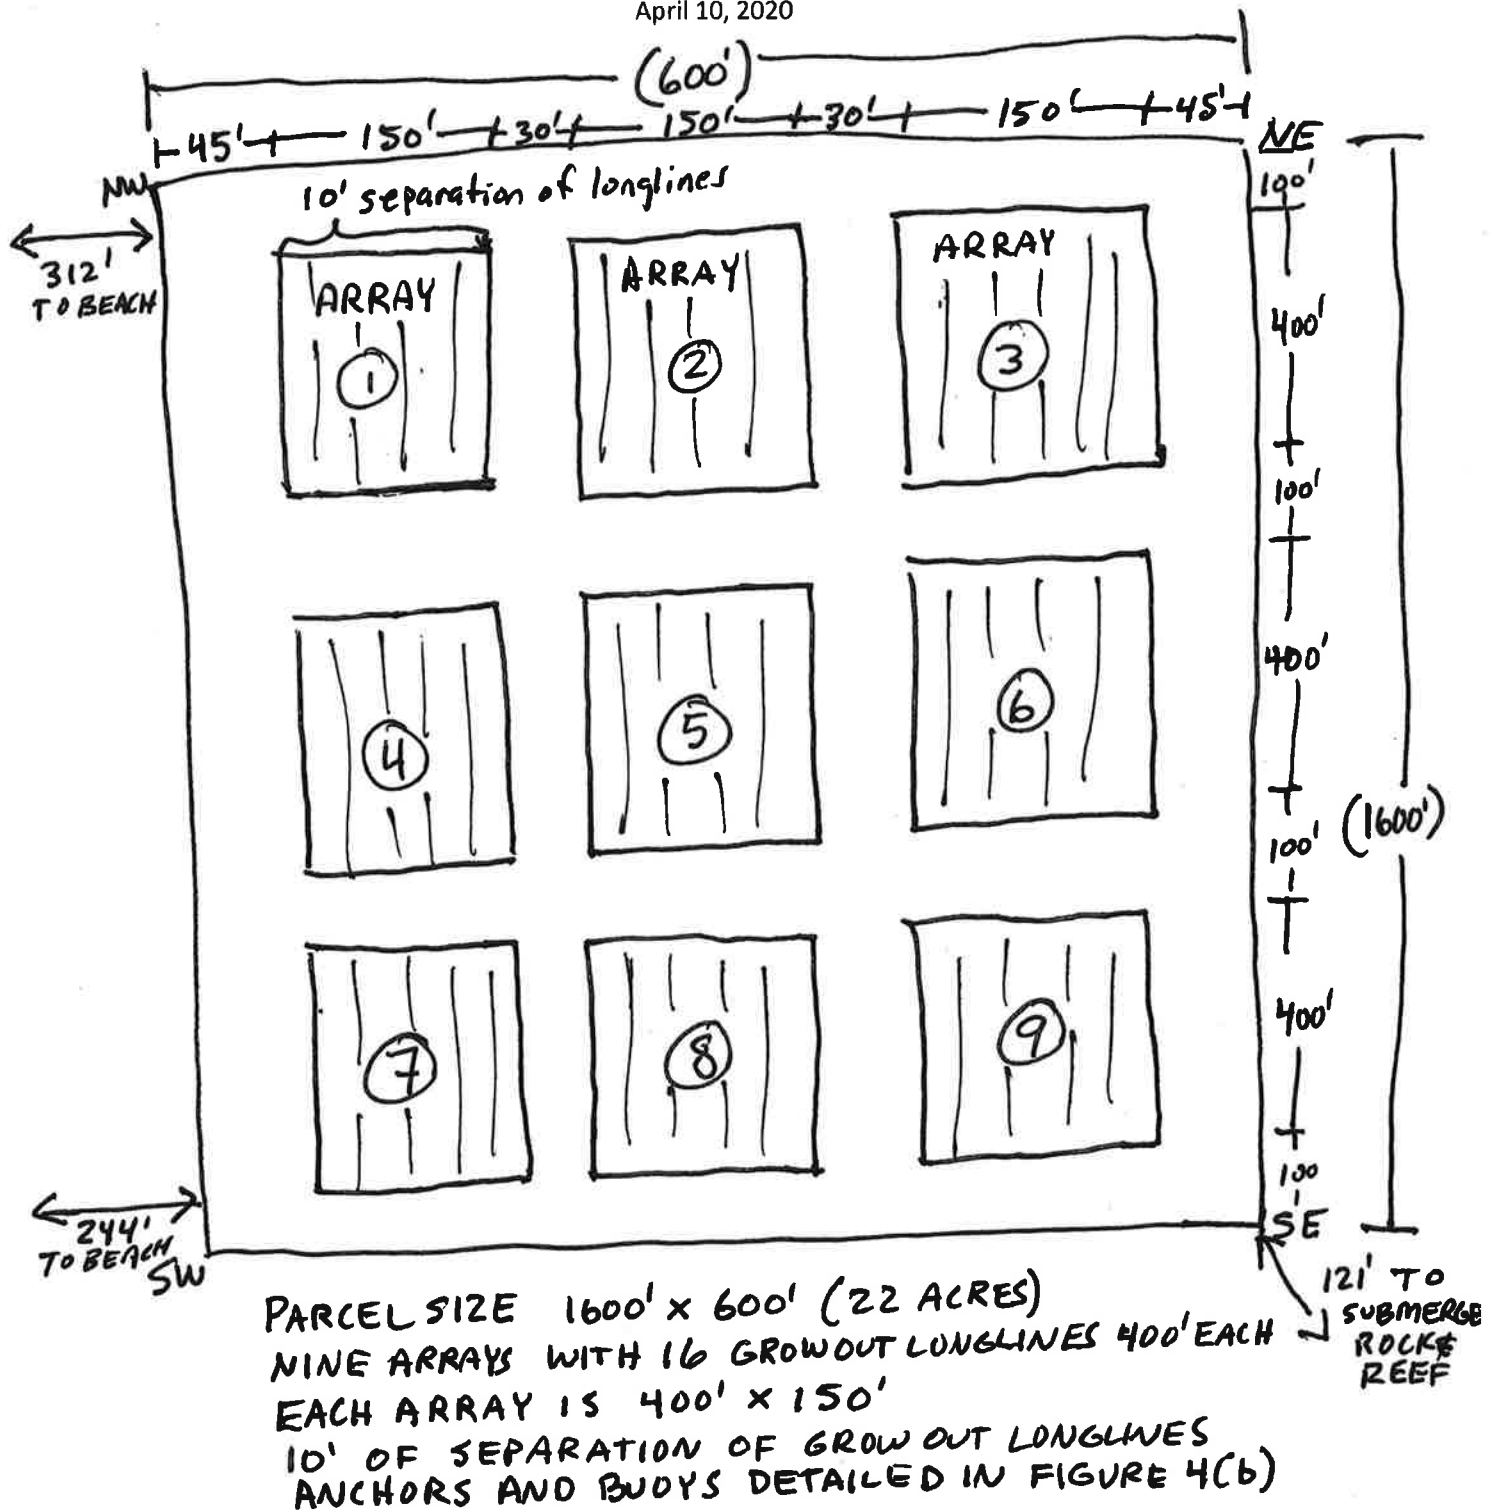 April 10, 2020
(600')
45' 150' 30' 150' 30' 150' 45'
NW
NE
10' separation of longlines
100'
312'
TO BEACH
ARRAY
1
ARRAY
2
ARRAY
3
400'
100'
4
5
6
400'
(1600')
100'
7
8
9
400'
100'
SE
244'
TO BEACH
SW
121' TO
SUBMERGE
ROCK &
REEF
PARCEL SIZE 1600' x 600' (22 ACRES)
NINE ARRAYS WITH 16 GROWOUT LONGLINES 400' EACH
EACH ARRAY IS 400' x 150'
10' OF SEPARATION OF GROW OUT LONGLINES
ANCHORS AND BUOYS DETAILED IN FIGURE 4(b)